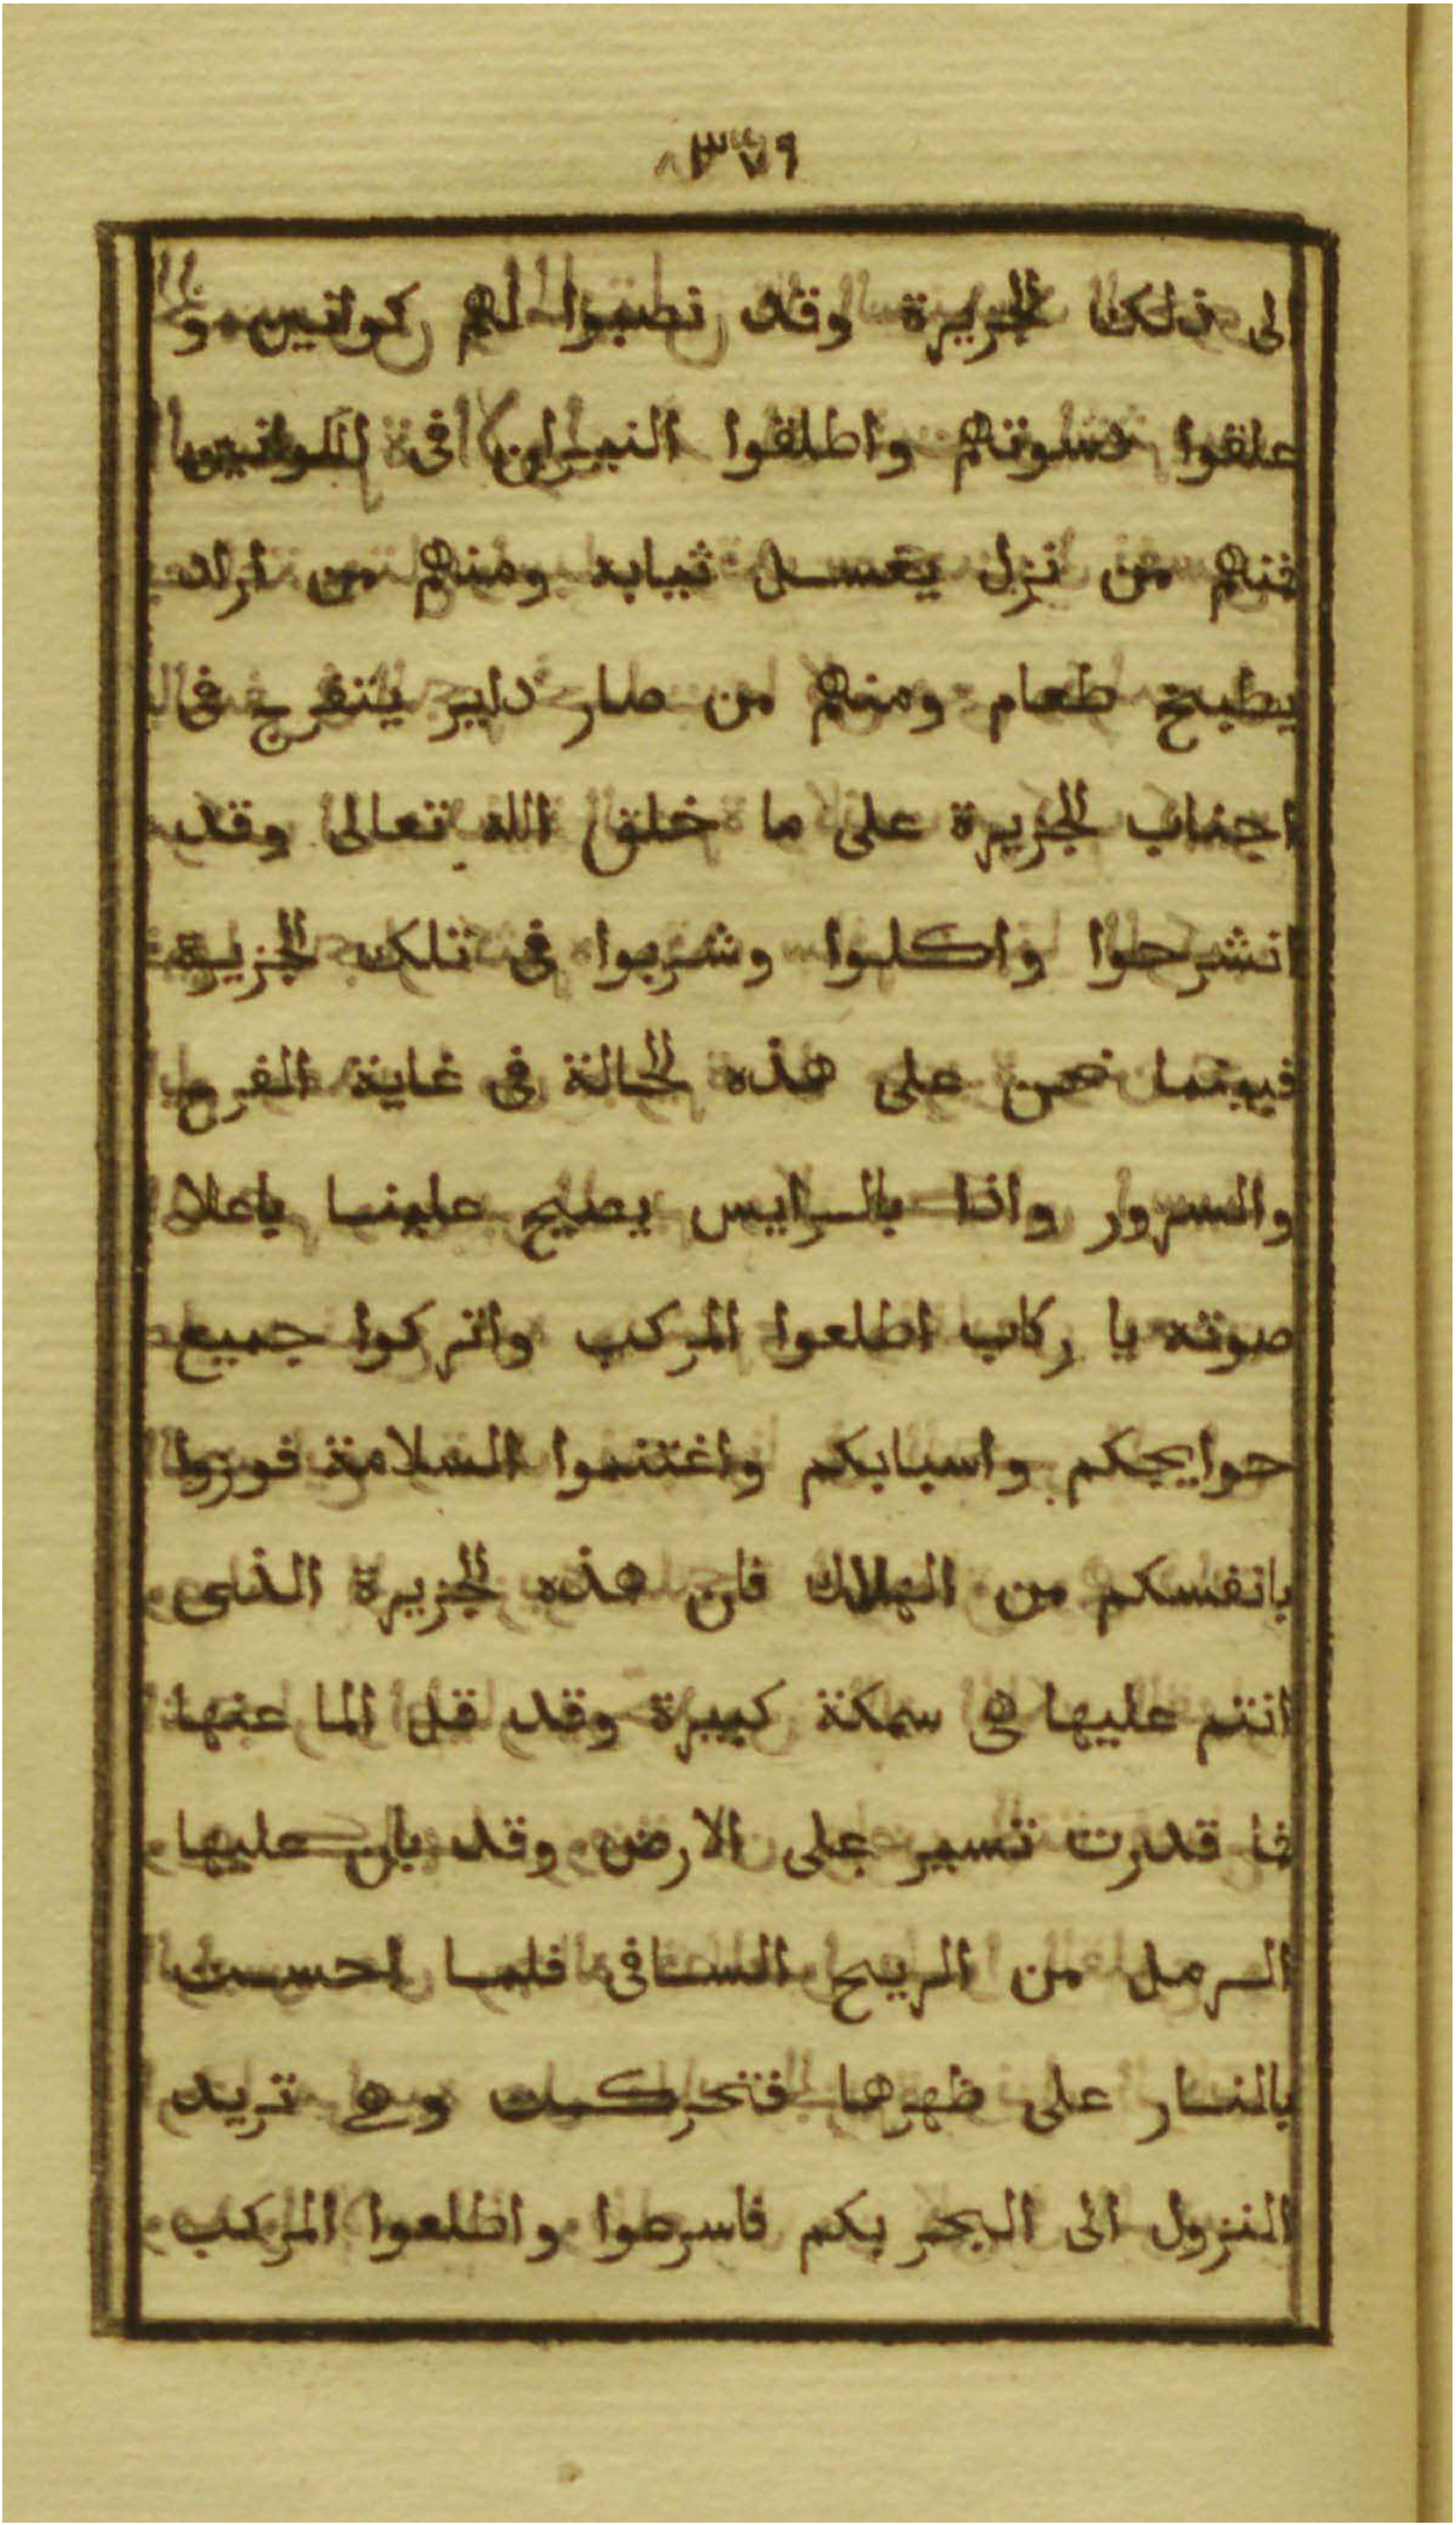 ٣٧٩
الى ذلك الجزيرة وقد نصبوا لهم كوانين و
علقوا دسوتهم واطلقوا النيران فى الكوانين
فمنهم من نزل يغسل ثيابه ومنهم من اراد
يطبخ طعام ومنهم من صار داير يتفرج فى
اجناب الجزيرة على ما خلق الله تعالى وقد
انشرحوا واكلوا وشربوا فى تلك الجزيرة
فبينما نحن على هذه الحالة فى غاية الفرح
والسرور واذا بالرايس يصيح علينا باعلا
صوته يا ركاب اطلعوا المركب واتركوا جميع
حوايجكم واسبابكم واغتنموا السلامة فوزوا
بانفسكم من الهلاك فان هذه الجزيرة الذى
انتم عليها هى سمكة كبيرة وقد قل الما عنها
فما قدرت تسير على الارض وقد بان عليها
الرمل من الريح السافى فلما احست
بالنار على ظهرها فتحركت وهى تريد
النزول الى البحر بكم فاسرعوا واطلعوا المركب